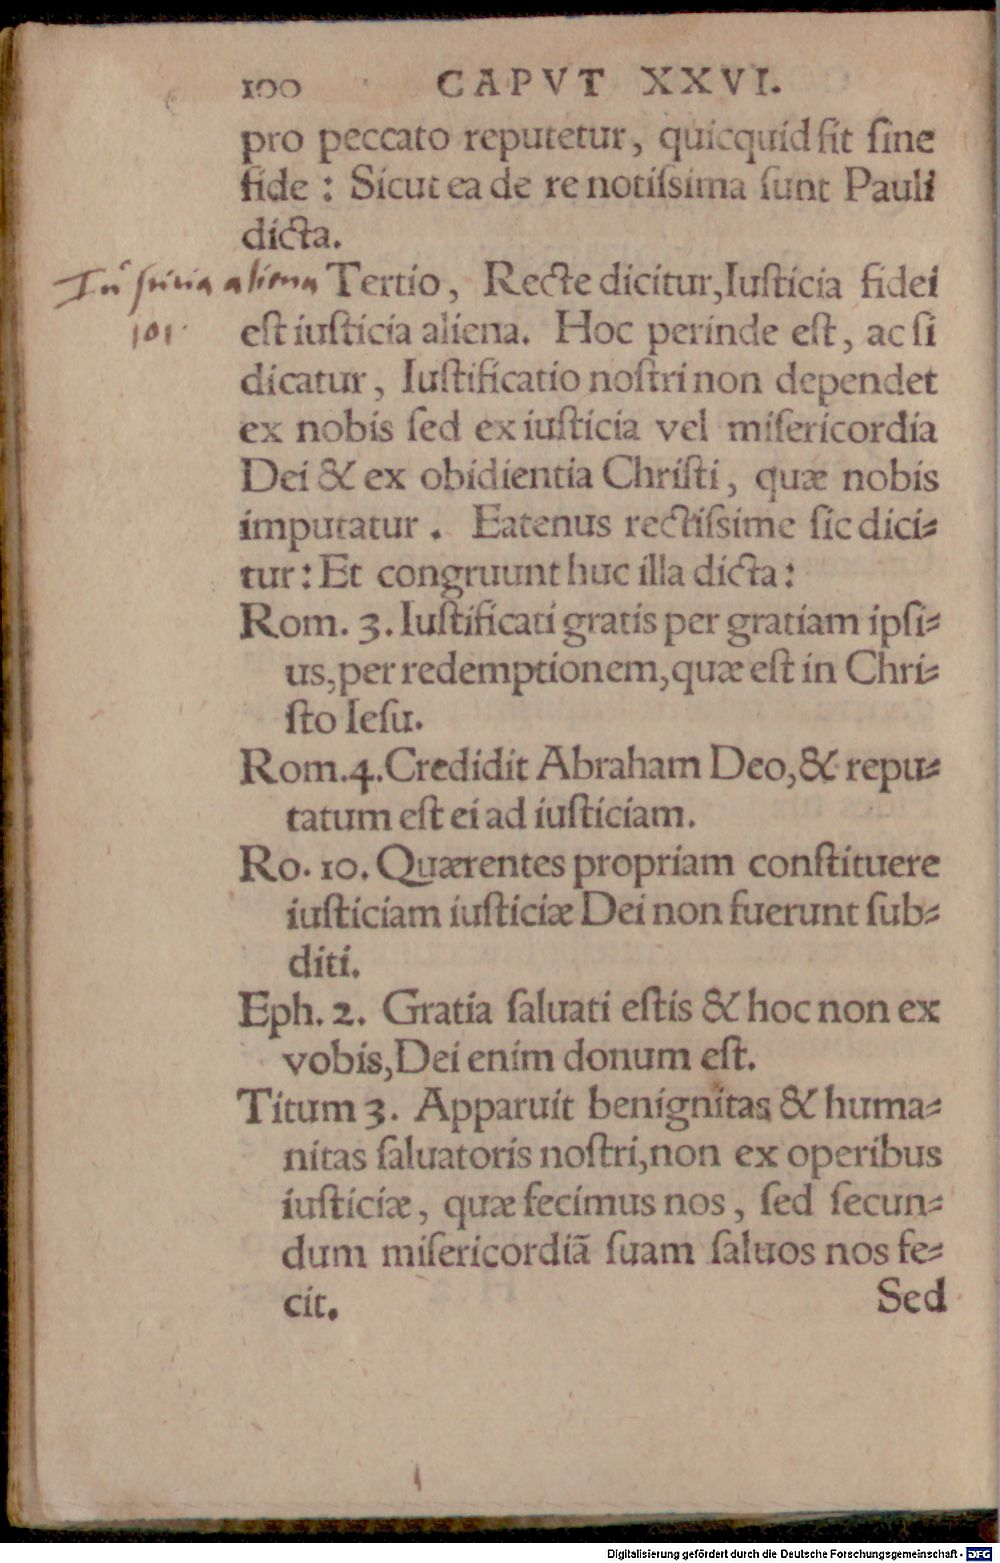 100 CAPVT XXVI.
pro peccato reputetur, quicquid ſit ſine
fide : Sicut ea de re notiſsima ſunt Pauli
dicta.
aliena
101
Tertio, Recte dicitur, Iuſticia fidei
eſt iuſticia aliena. Hoc perinde eſt, ac ſi
dicatur, Iuſtificatio noſtri non dependet
ex nobis ſed ex iuſticia vel miſericordia
Dei & ex obidientia Chriſti, quæ nobis
imputatur. Eatenus rectiſsime ſic dici⸗
tur: Et congruunt huc illa dicta:
Rom. 3. Iuſtificati gratis per gratiam ipſi⸗
us, per redemptionem, quæ eſt in Chri⸗
ſto Ieſu.
Rom. 4. Credidit Abraham Deo, & repu⸗
tatum eſt ei ad iuſticiam.
Ro. 10. Quærentes propriam conſtituere
iuſticiam iuſticiæ Dei non fuerunt ſub⸗
diti.
Eph. 2. Gratia ſaluati eſtis & hoc non ex
vobis, Dei enim donum eſt.
Titum 3. Apparuit benignitas & huma⸗
nitas ſaluatoris noſtri, non ex operibus
iuſticiæ, quæ fecimus nos, ſed ſecun⸗
dum miſericordiã ſuam ſaluos nos fe⸗
cit.
Sed
Digitalisierung gefördert durch die Deutsche Forschungsgemeinschaft - DFG